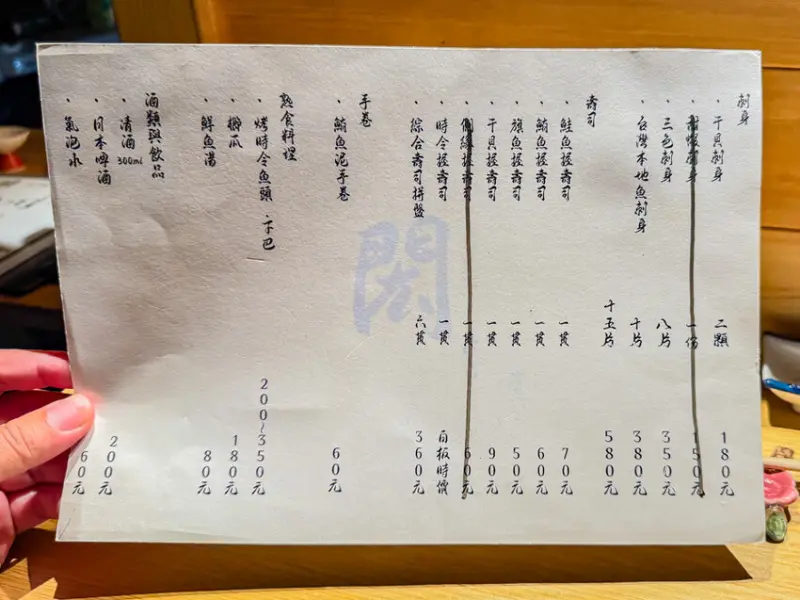 刺身
・干貝刺身 二顆 180元
刺身 一份 150元
・三色刺身 八片 350元
・台灣本地魚刺身 十片 380元
十五片 580元
壽司
・鮭魚握壽司 一貫 70元
・鮪魚握壽司 一貫 60元
・旗魚握壽司 一貫 50元
・干貝握壽司 一貫 90元
・側緣握壽司 一貫 60元
・時令握壽司 一貫 白板時價
・綜合壽司拼盤 六貫 360元
手卷
・鮪魚泥手卷 60元
熟食料理
・烤時令魚頭、下巴 200~350元
・櫛瓜 180元
・鮮魚湯 80元
酒類與飲品
・清酒 300ml
・日本啤酒 200元
・氣泡水 60元